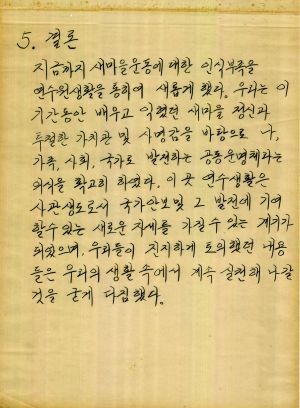 5. 결론
지금까지 새마을운동에 대한 인식부족을
연수원생활을 통하여 새롭게 했다. 우리는 이
기간동안 배우고 익혔던 새마을 정신과
투철한 가치관 및 사명감을 바탕으로 나,
가족, 사회, 국가로 발전하는 공동운명체라는
의식을 확고히 하였다. 이 곳 연수생활은
사관생도로서 국가안보및 그 발전에 기여
할수 있는 새로운 자세를 가질 수 있는 계기가
되었으며, 우리들이 진지하게 토의했던 내용
들은 우리의 생활 속에서 계속 실천해 나갈
것을 굳게 다짐했다.